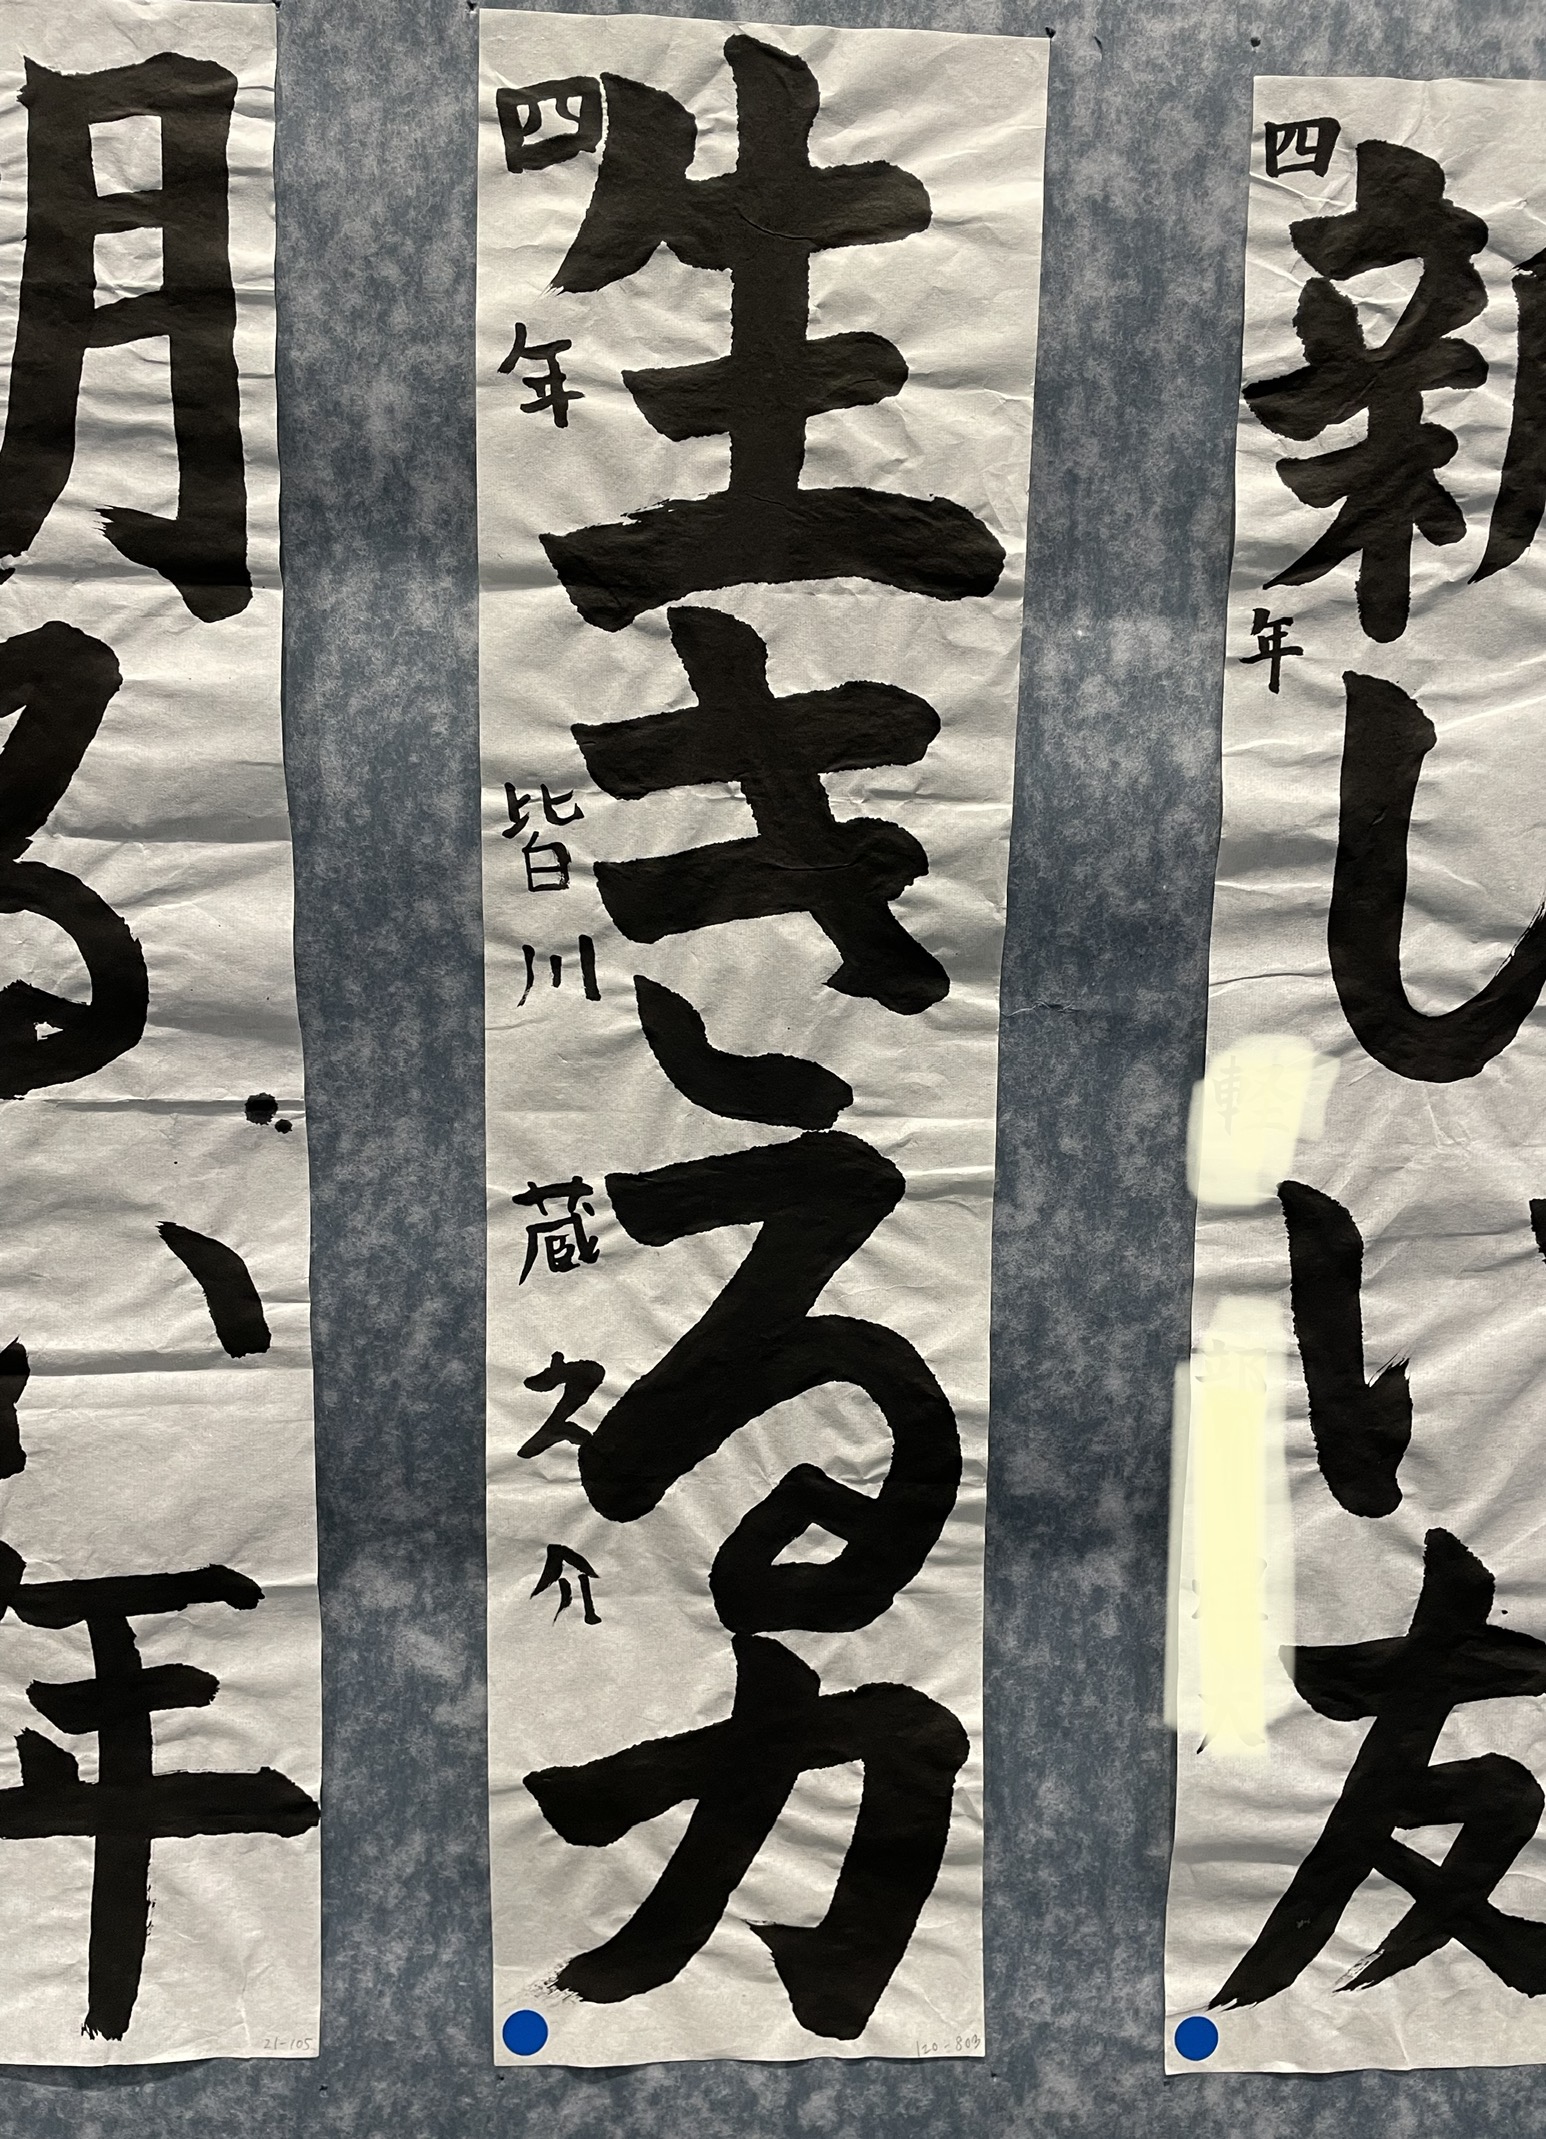 新しい友
四年
生きる力
四年 皆川 蔵之介
120-803
明るい年
21-105